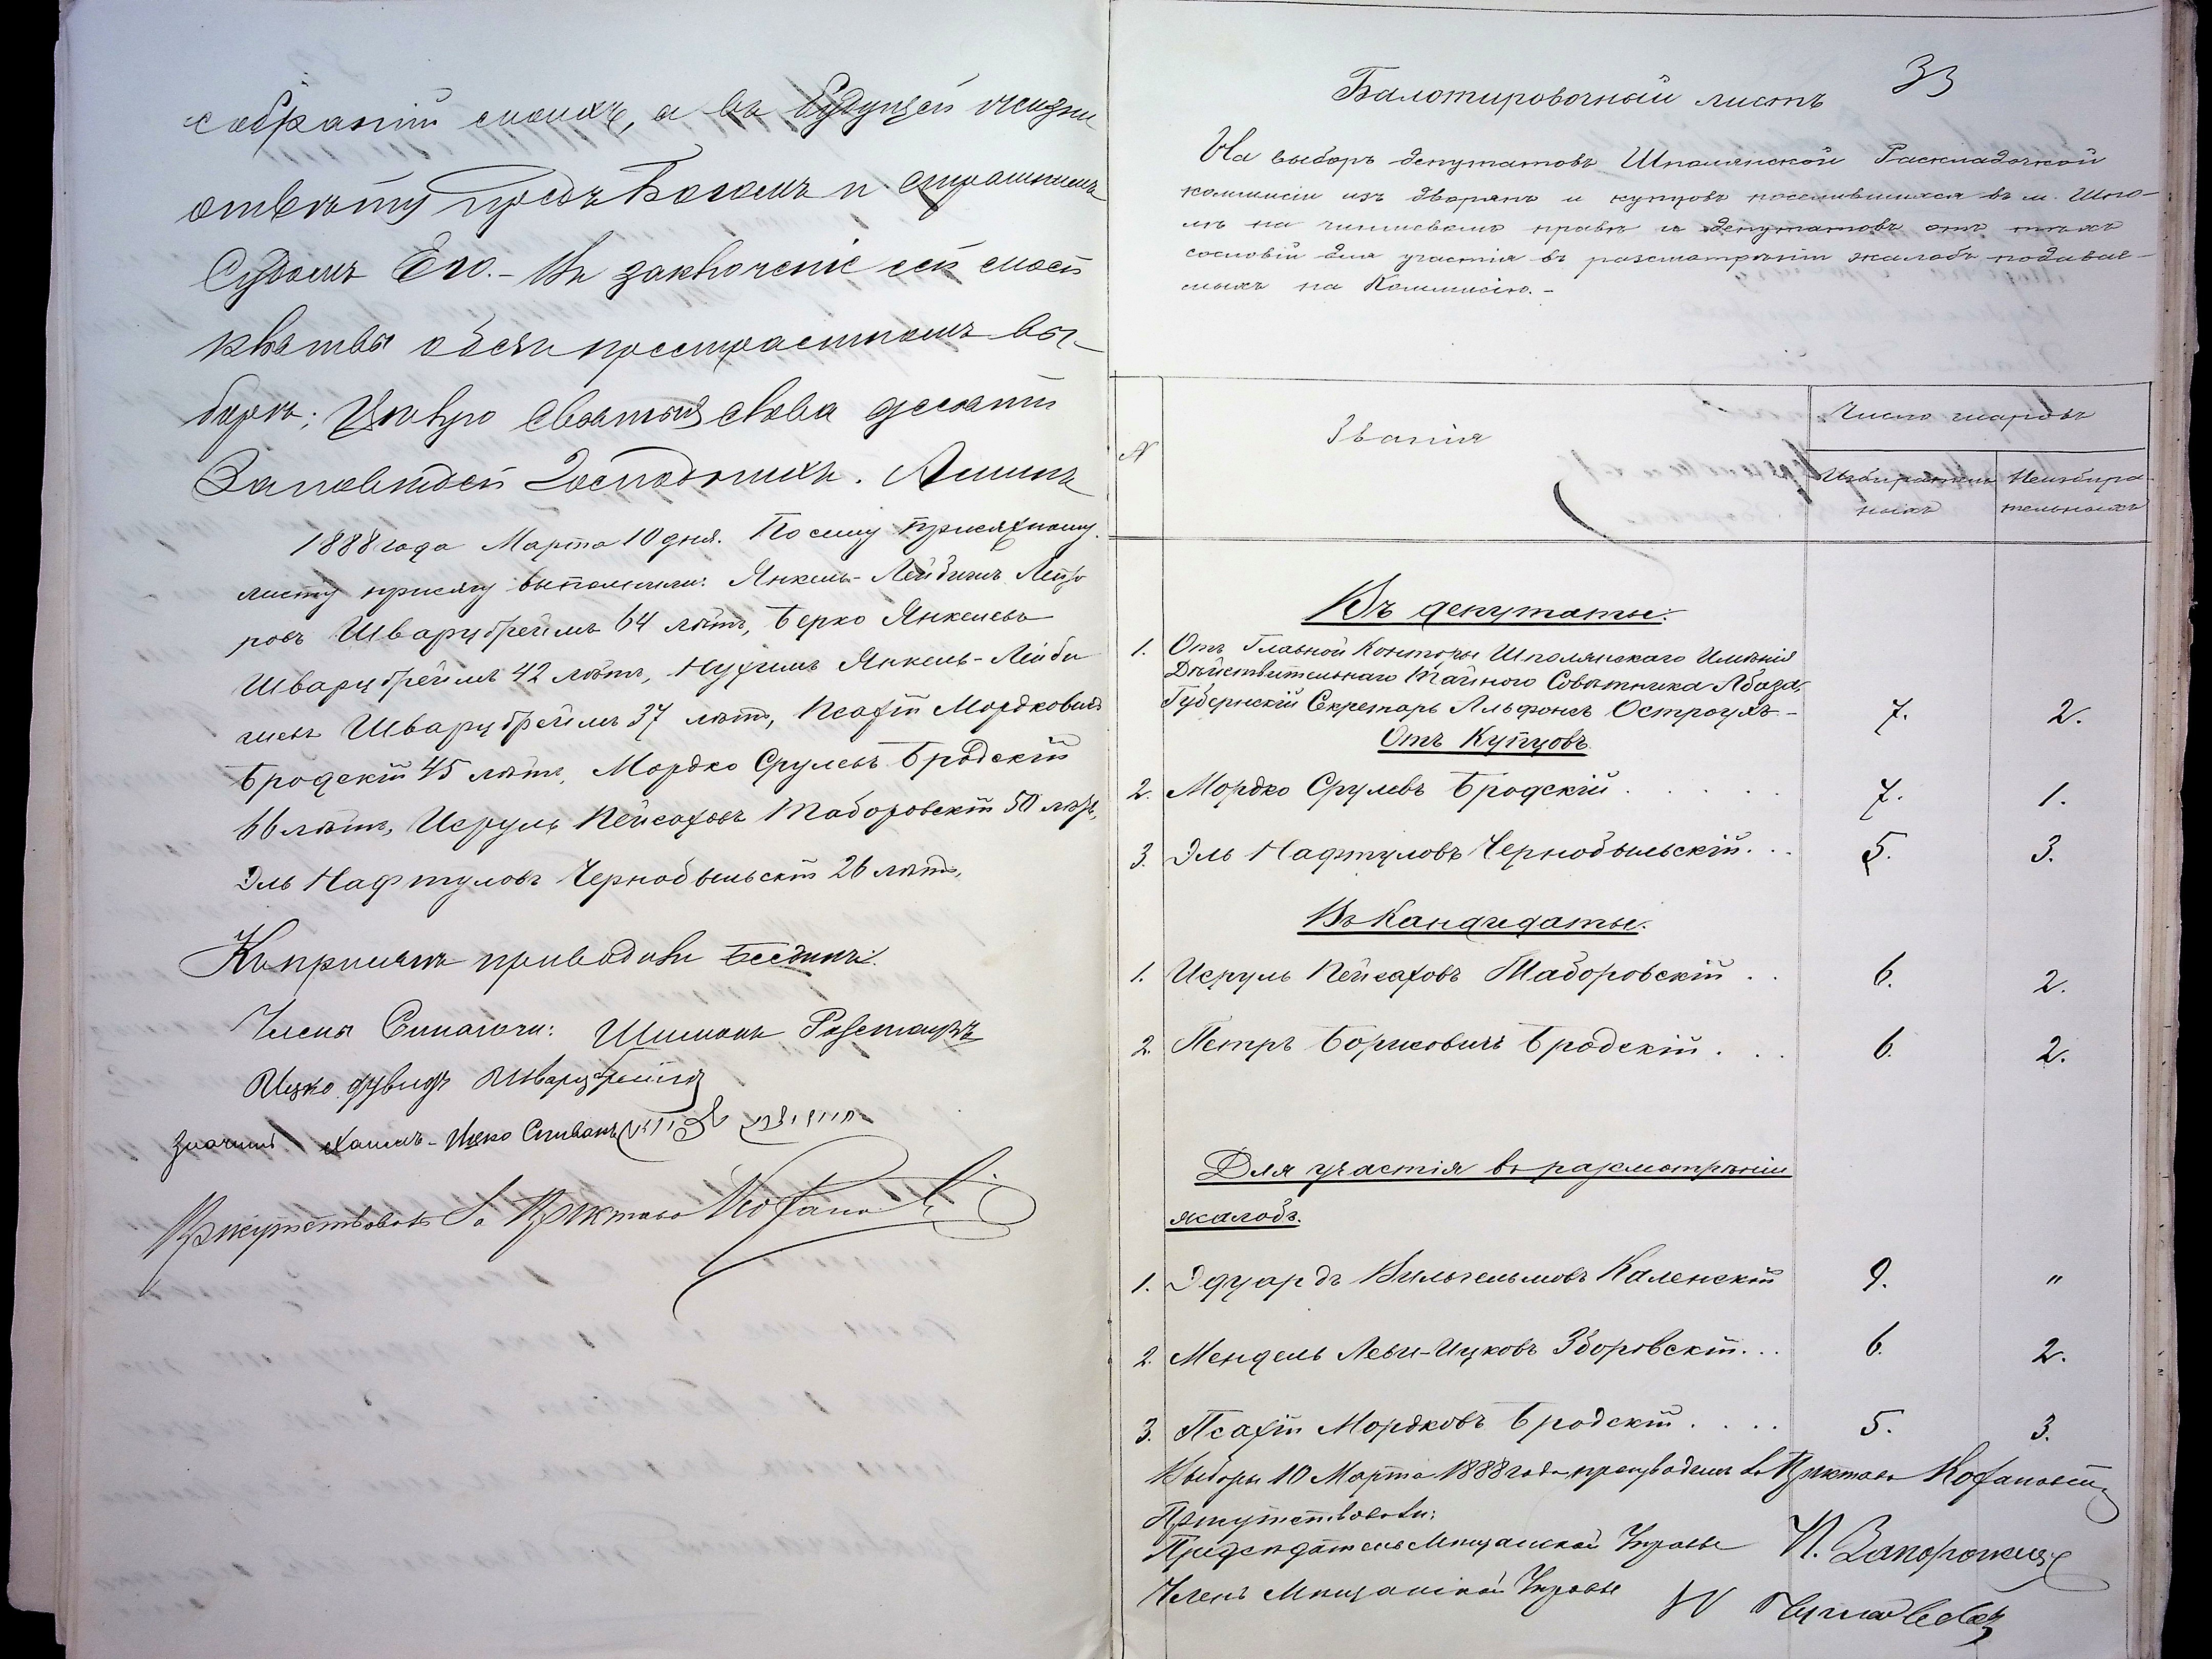 собраній своихъ, а въ будущей жизни
отвѣту предъ Богомъ и страшнымъ
Судомъ Его. – Въ заключеніе сей моей
клятвы о безпристрастномъ вы-
борѣ; цѣлую слова десяти
Заповѣдей Господнихъ. Аминь
1888 года Марта 10 дня. По сему присяжному
листу присягу выполнили: Янкель-Лейбишъ
ровъ Шварцбреймъ 64 лѣтъ, Берко Янкелевъ
Шварцбреймъ 42 лѣтъ, Нухимъ Янкель-Лейби
шевъ Шварцбреймъ 37 лѣтъ, Псахій Мордковичъ
Бродскій 45 лѣтъ, Мордко Срулевъ Бродскій
66 лѣтъ, Исруль Пейсаховъ Таборовскій 50 лѣтъ,
Эль Нафтуловъ Чернобыльскій 26 лѣтъ,
Къ присягѣ приводилъ
Члены Синагоги: Шимонъ
Ицко Дувидъ Шварцбреймъ
Хаимъ-Ицко Спивакъ
Присутствовалъ За Пристава
33
Балотировочный листъ
На выборъ депутатовъ Шполянской Раскладочной
коммисіи изъ дворянъ и купцовъ поселившихся въ м. Шпо-
лѣ на чиншевомъ правѣ и депутатовъ отъ тѣхъ
сословій для участія въ разсмотрѣніи жалобъ подавае-
мыхъ на Коммисію. –
N
Званія
Число шаровъ
Избиратель Неизбира-
ныхъ тельныхъ
Въ депутаты:
1. Отъ Главной Конторы Шполянскаго Имѣнія
Дѣйствительнаго Тайнаго Совѣтника Абаза,
Губернскій Секретарь Альфонсъ Остроухъ – 7. 2.
Отъ Купцовъ
2. Мордко Срулевъ Бродскій . . . . . 7. 1.
3. Эль Нафтуловъ Чернобыльскій. . . 5. 3.
Въ Кандидаты.
1. Исруль Пейсаховъ Таборовскій . . 6. 2.
2. Петръ Борисовичъ Бродскій . . . 6. 2.
Для участія въ разсмотрѣніи
жалобъ.
1. Эдуардъ Вильгельмовъ Каленскій 9. "
2. Мендель Левы-Ицковъ Зборовскій. . . 6. 2.
3. Псахій Мордковъ Бродскій . . . . 5. 3.
Выборы 10 Марта 1888 года производилъ За Пристава
Присутствовали:
Предсѣдатель Мѣщанской Управы И. Запорожецъ
Членъ Мѣщанской Управы